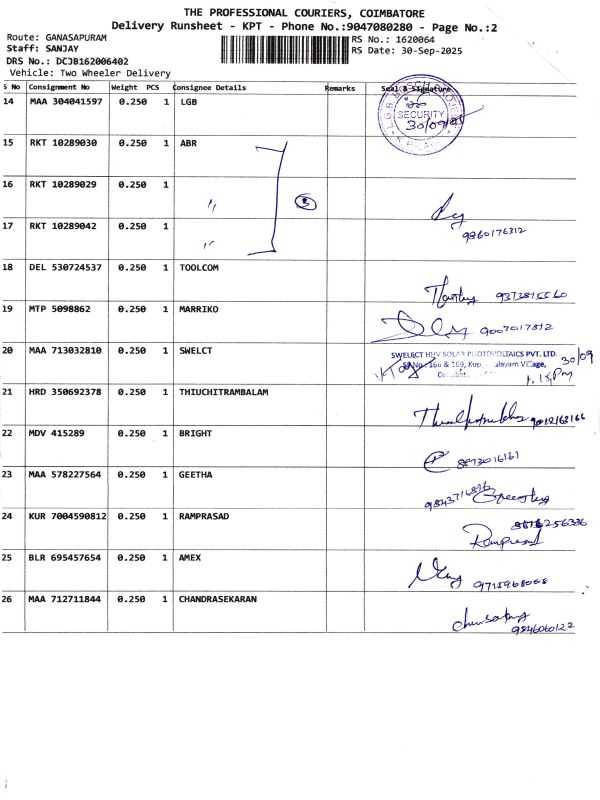 THE PROFESSIONAL COURIERS, COIMBATORE
Delivery Runsheet - KPT - Phone No.:9047080280 - Page No.:2
Route: GANASAPURAM
RS No.: 1620064
Staff: SANJAY
RS Date: 30-Sep-2025
DRS No.: DCJB162006402
Vehicle: Two Wheeler Delivery
S No Consignment No Weight PCS Consignee Details Remarks Seal & Signature
14 MAA 304041597 0.250 1 LGB
SECURITY
30/09/25
15 RKT 10289030 0.250 1 ABR
16 RKT 10289029 0.250 1 〃
3
17 RKT 10289042 0.250 1 〃
9360176312
18 DEL 530724537 0.250 1 TOOLCOM
9373815560
19 MTP 5098862 0.250 1 MARRIKO
9007017812
20 MAA 713032810 0.250 1 SWELCT
SWELECT HHV SOLAR PHOTOVOLTAICS PVT. LTD.
30/09
SF No. 166 & 169, Village,
1.15 PM
21 HRD 350692378 0.250 1 THIUCHITRAMBALAM
22 MDV 415289 0.250 1 BRIGHT
8873016161
23 MAA 578227564 0.250 1 GEETHA
24 KUR 7004590812 0.250 1 RAMPRASAD
Ramprasad
25 BLR 695457654 0.250 1 AMEX
9715968068
26 MAA 712711844 0.250 1 CHANDRASEKARAN
9846060122